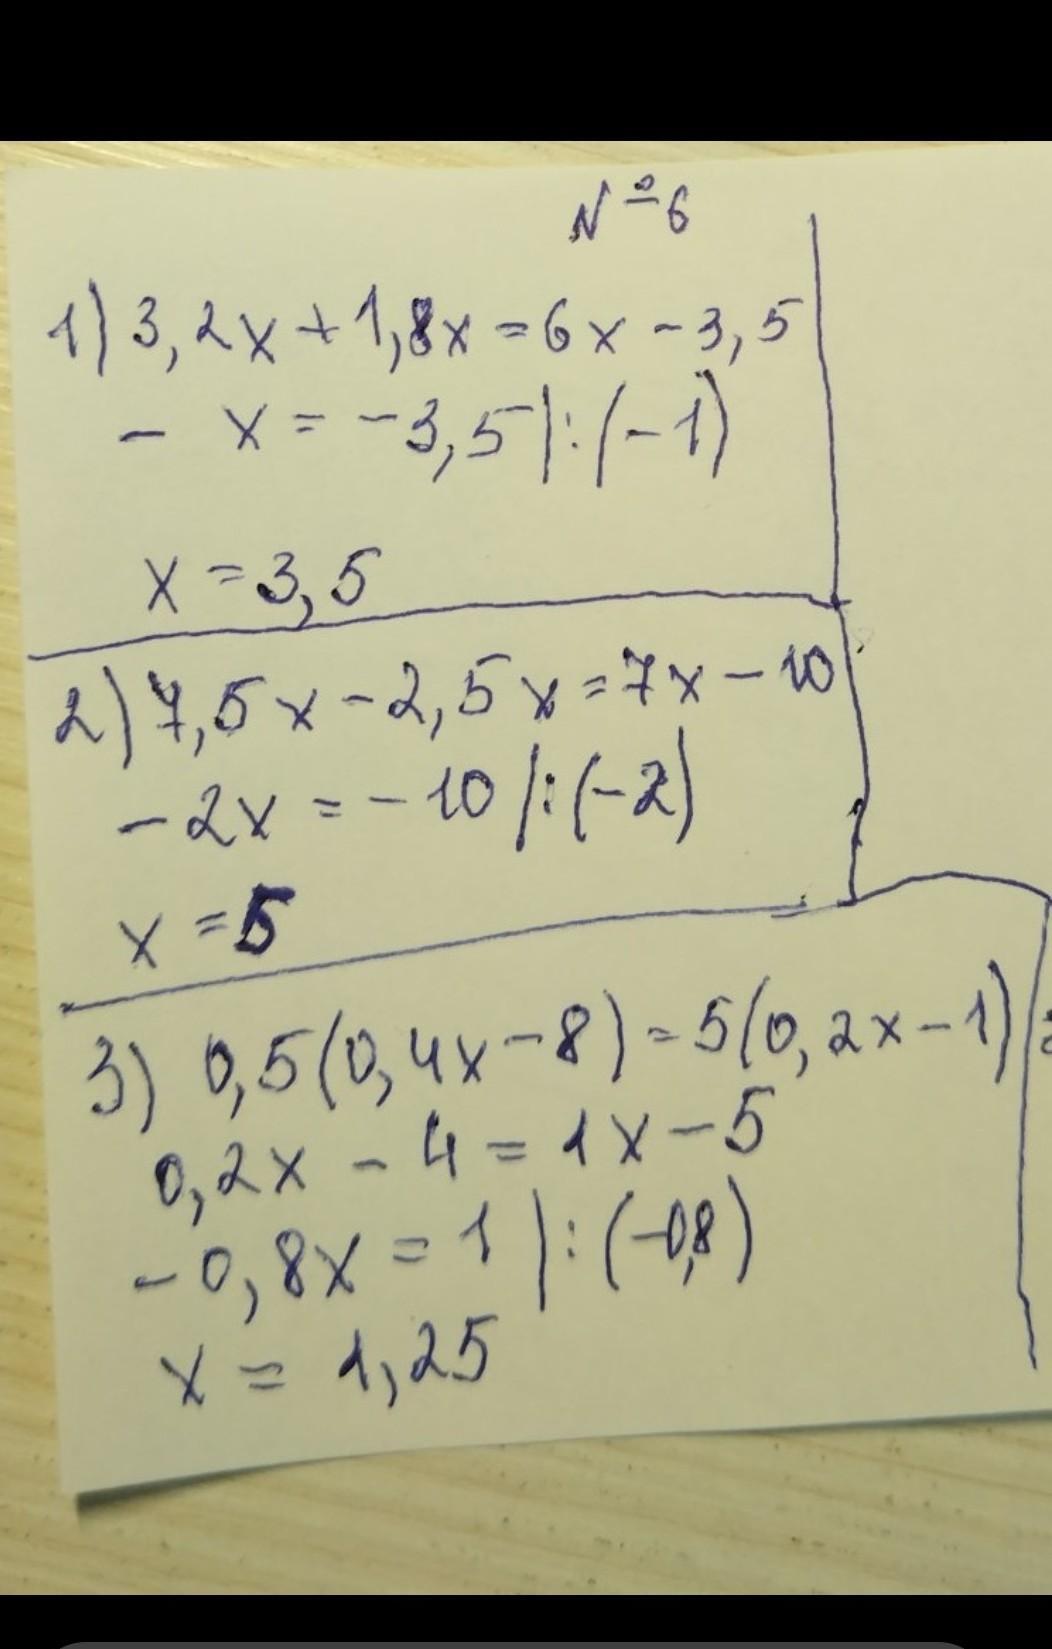 №6
1) 3,2x + 1,8x = 6x - 3,5
- x = -3,5 |:(-1)
x = 3,5
2) 7,5x - 2,5x = 7x - 10
- 2x = - 10 |:(-2)
x = 5
3) 0,5(0,4x - 8) = 5(0,2x - 1) =
0,2x - 4 = 1x - 5
- 0,8x = 1 |:(-0,8)
x = 1,25